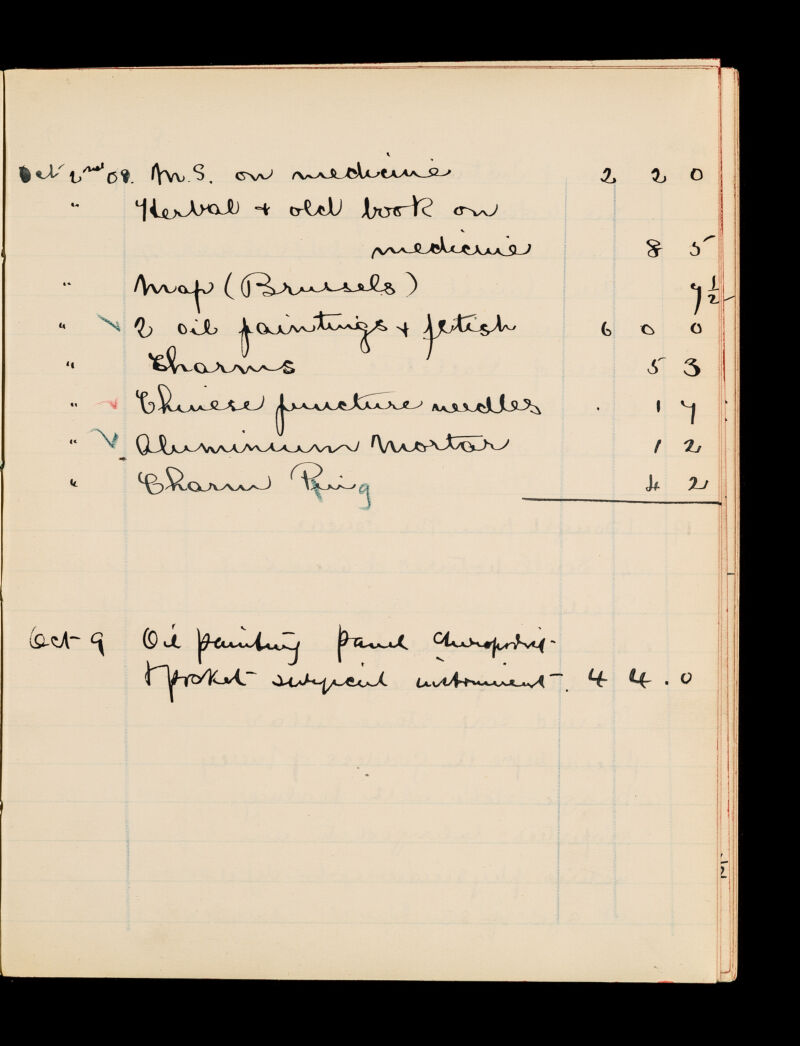 Oct 2nd 09. M.S. on medicine 2 2 0
" Herbal + old book on
medicine 8 5
" Map (Brussels) 7½
" 2 oil paintings + fetish 6 0 0
" Charms 5 3
" Chinese puncture needles . 1 7
" Aluminium Mortar 1 2
" Charm Ring 4 2
Oct 9 Oil painting panel chiropodist
+ pocket surgical instrument. 4 4 . 0